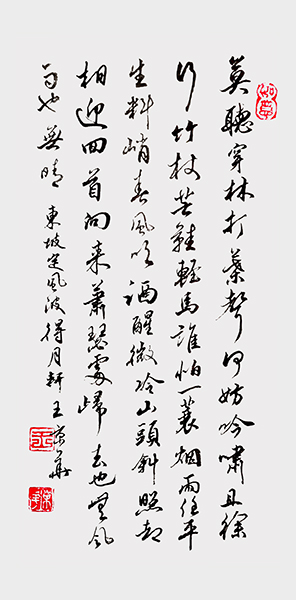 莫聽穿林打葉聲何妨吟嘯且徐
行竹杖芒鞋輕馬誰怕一蓑烟雨任平
生料峭春風吹酒醒微冷山頭斜照却
相迎回首向来蕭瑟處歸去也無風
雨也無晴 東坡定風波得月軒王華